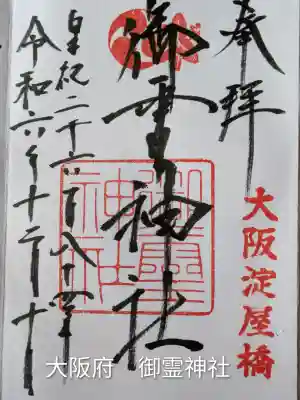 奉拝
大阪淀屋橋
御霊神社
御霊神社
皇紀二千六百八十四年
令和六年十二月十日
大阪府 御霊神社